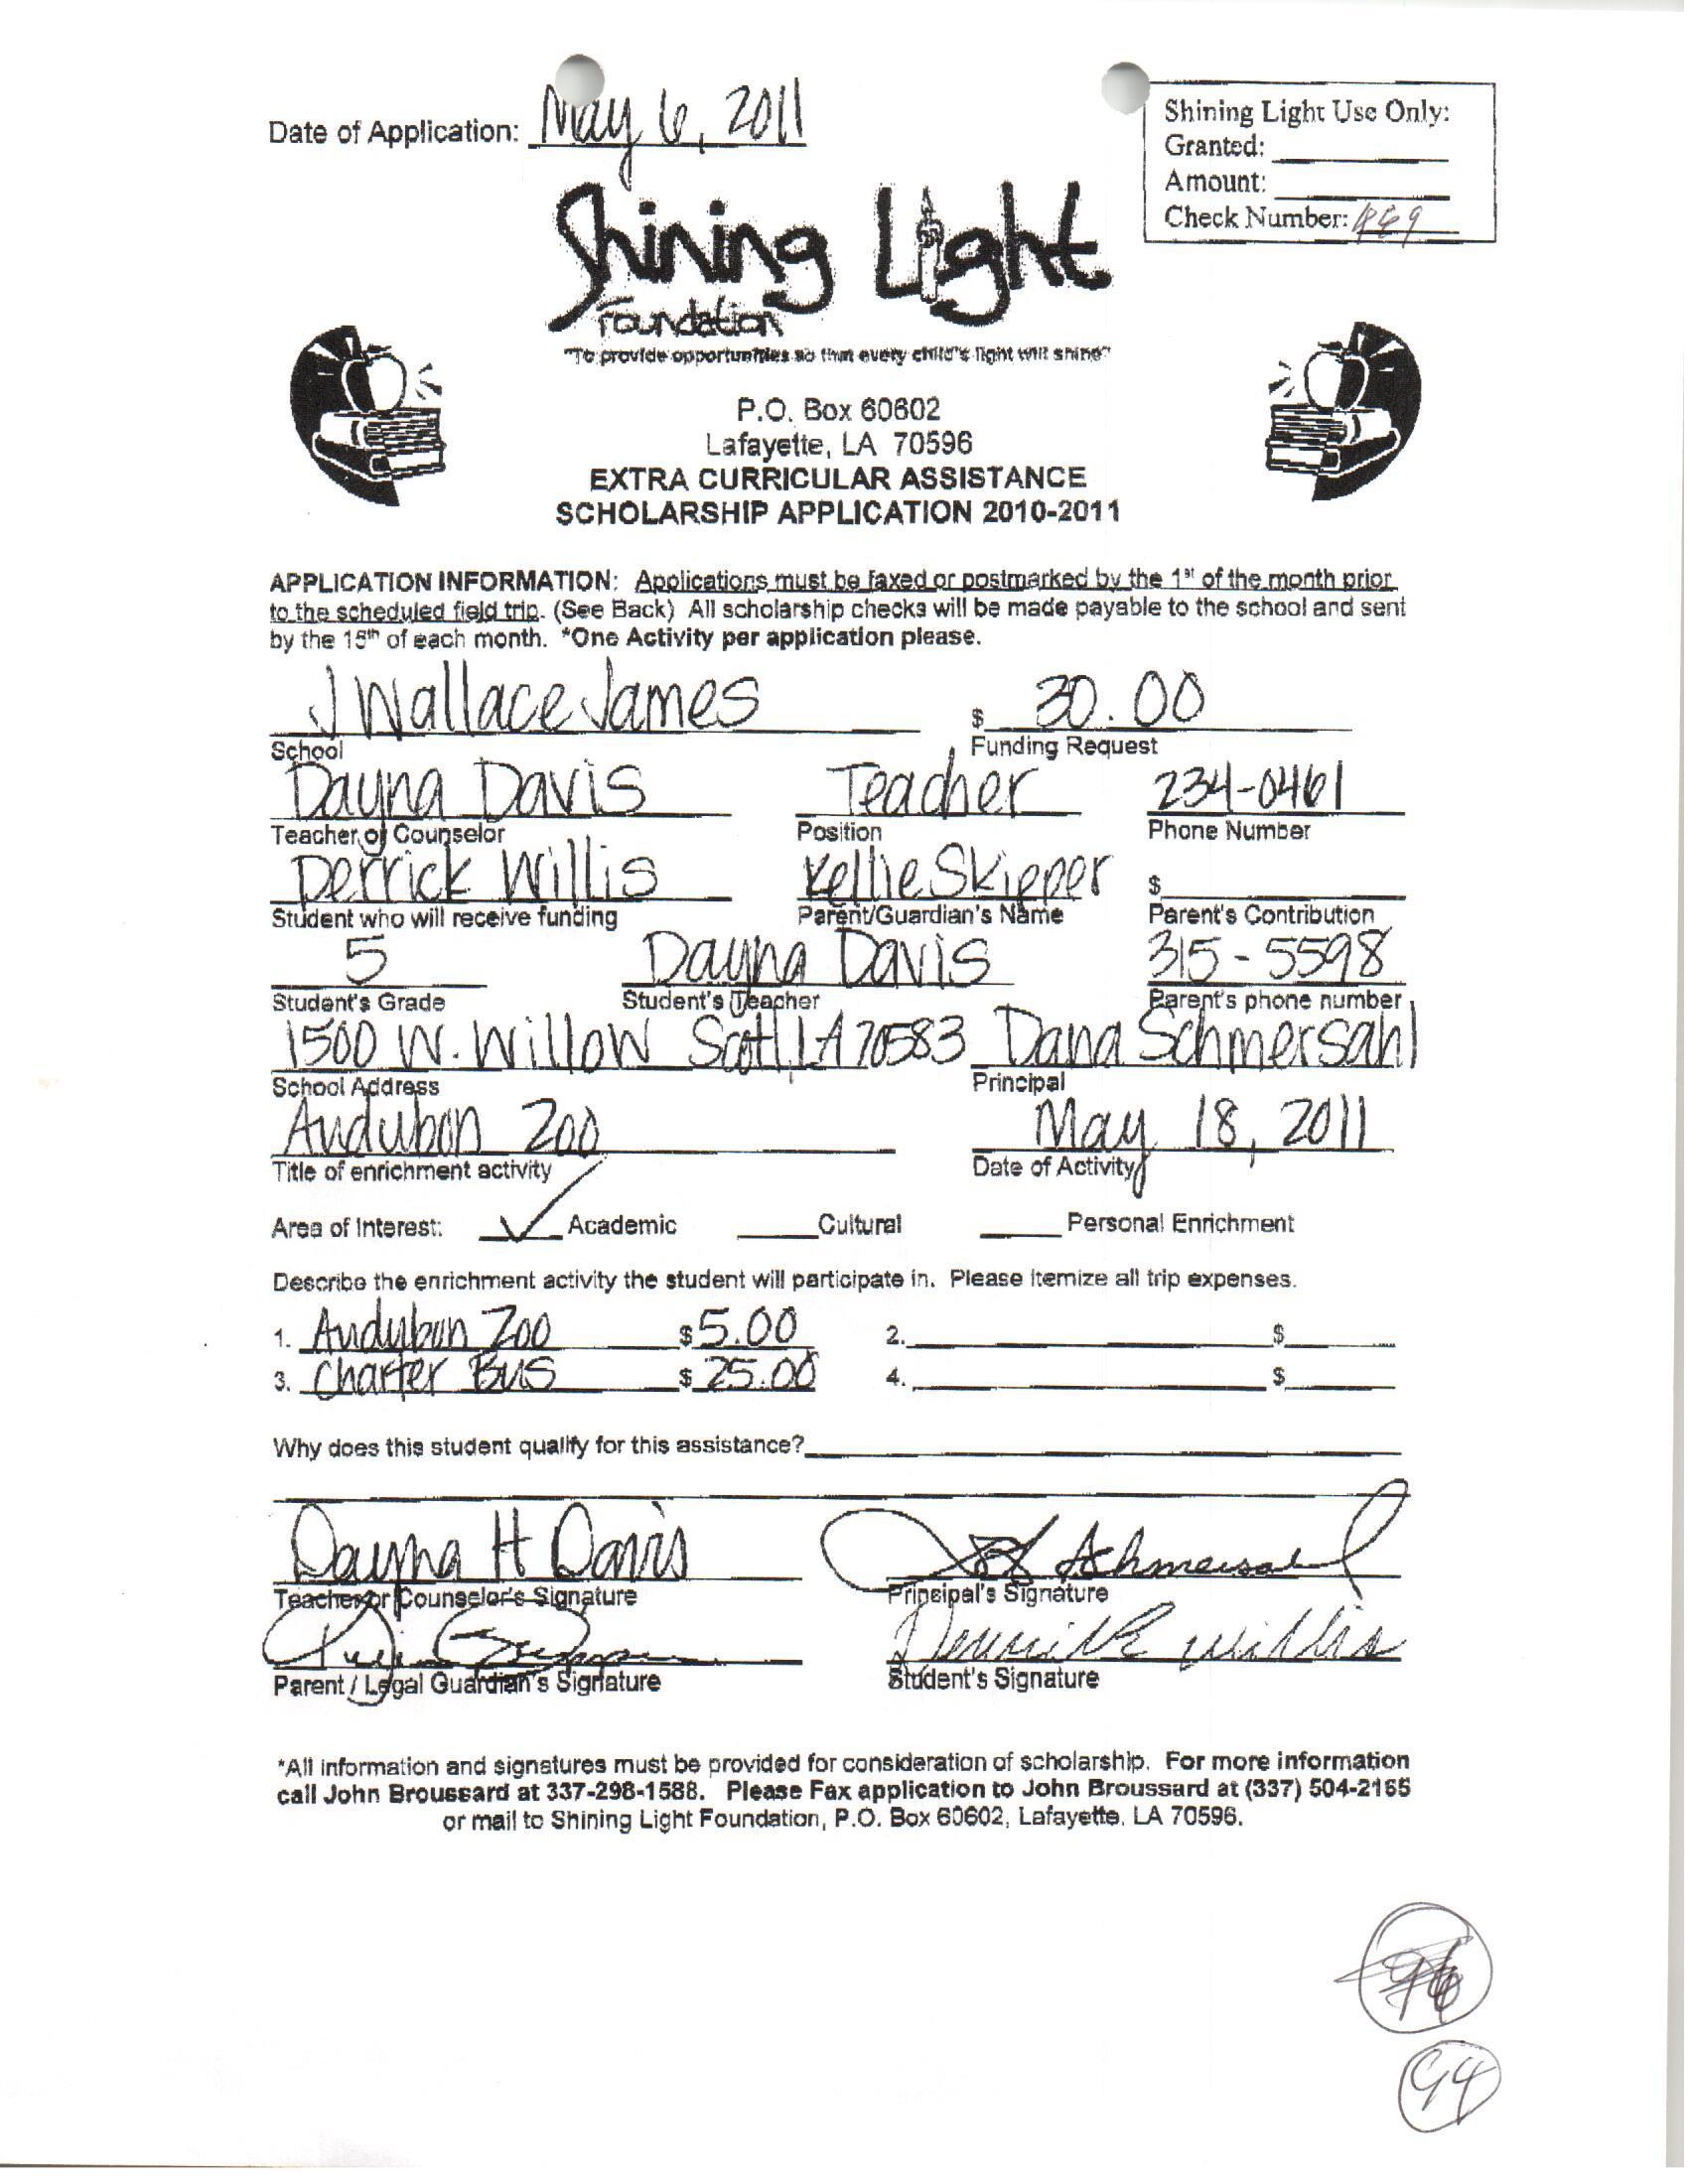 Date of Application: May 6, 2011
Shining Light Use Only:
Granted:
Amount:
Check Number:
Shining Light
Foundation
"To provide opportunities so that every child's light will shine"
P.O. Box 60602
Lafayette, LA 70596
EXTRA CURRICULAR ASSISTANCE
SCHOLARSHIP APPLICATION 2010-2011
APPLICATION INFORMATION: Applications must be faxed or postmarked by the 1st of the month prior
to the scheduled field trip. (See Back) All scholarship checks will be made payable to the school and sent
by the 15th of each month. *One Activity per application please.
J Wallace James $ 30.00
School Funding Request
Dayna Davis Teacher 234-0461
Teacher or Counselor Position Phone Number
Derrick Willis Kellie Skipper $
Student who will receive funding Parent/Guardian's Name Parent's Contribution
5 Dayna Davis 315-5598
Student's Grade Student's Teacher Parent's phone number
1500 W. Willow Scott, LA 70583 Dana Schmersahl
School Address Principal
Audubon Zoo May 18, 2011
Title of enrichment activity Date of Activity
Area of Interest: ✓ Academic Cultural Personal Enrichment
Describe the enrichment activity the student will participate in. Please itemize all trip expenses.
1. Audubon Zoo $ 5.00 2. $
3. Charter Bus $ 25.00 4. $
Why does this student qualify for this assistance?
Dayna H Davis Schmersahl
Teacher or Counselor's Signature Principal's Signature
Derrick Willis
Parent / Legal Guardian's Signature Student's Signature
*All information and signatures must be provided for consideration of scholarship. For more information
call John Broussard at 337-298-1588. Please Fax application to John Broussard at (337) 504-2165
or mail to Shining Light Foundation, P.O. Box 60602, Lafayette, LA 70596.
94